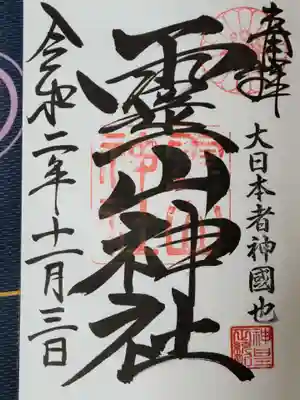 奉拝
大日本者神國也
靈山神社
令和二年十一月三日